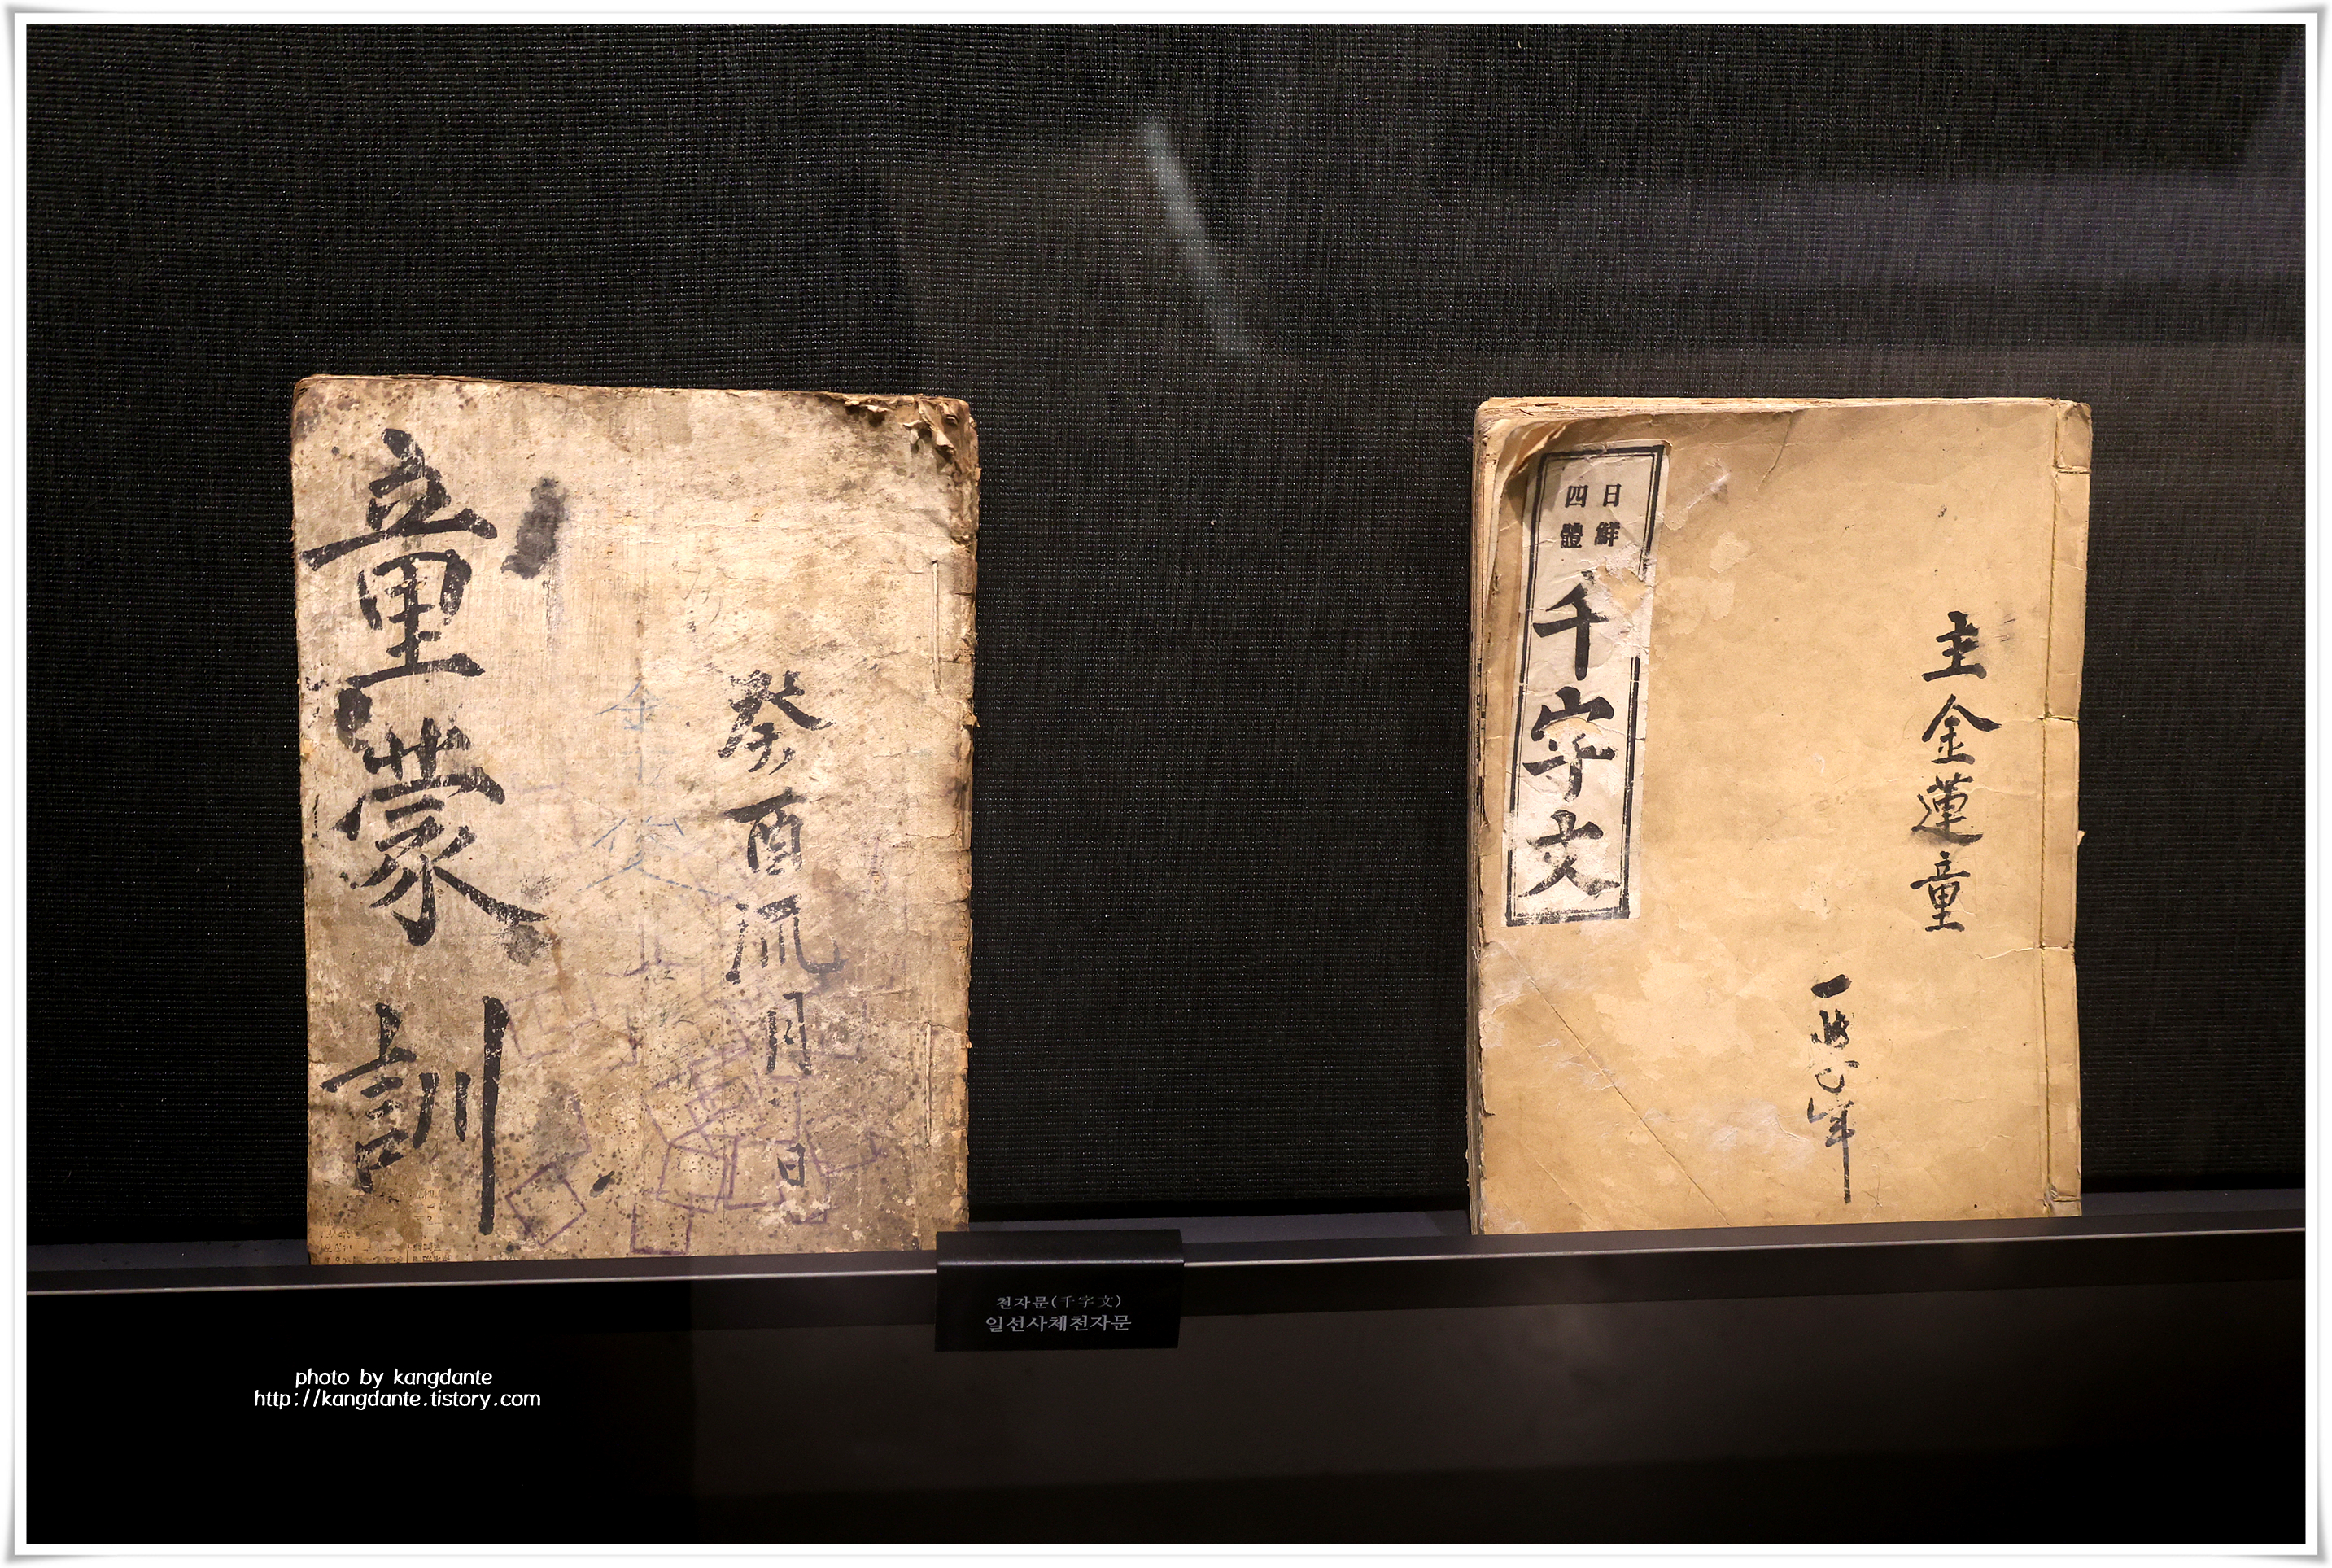 童蒙訓
癸酉流月 日
日鮮
四體
千字文
主金蓮童
천자문(千字文)
일선사체천자문
photo by kangdante
http://kangdante.tistory.com